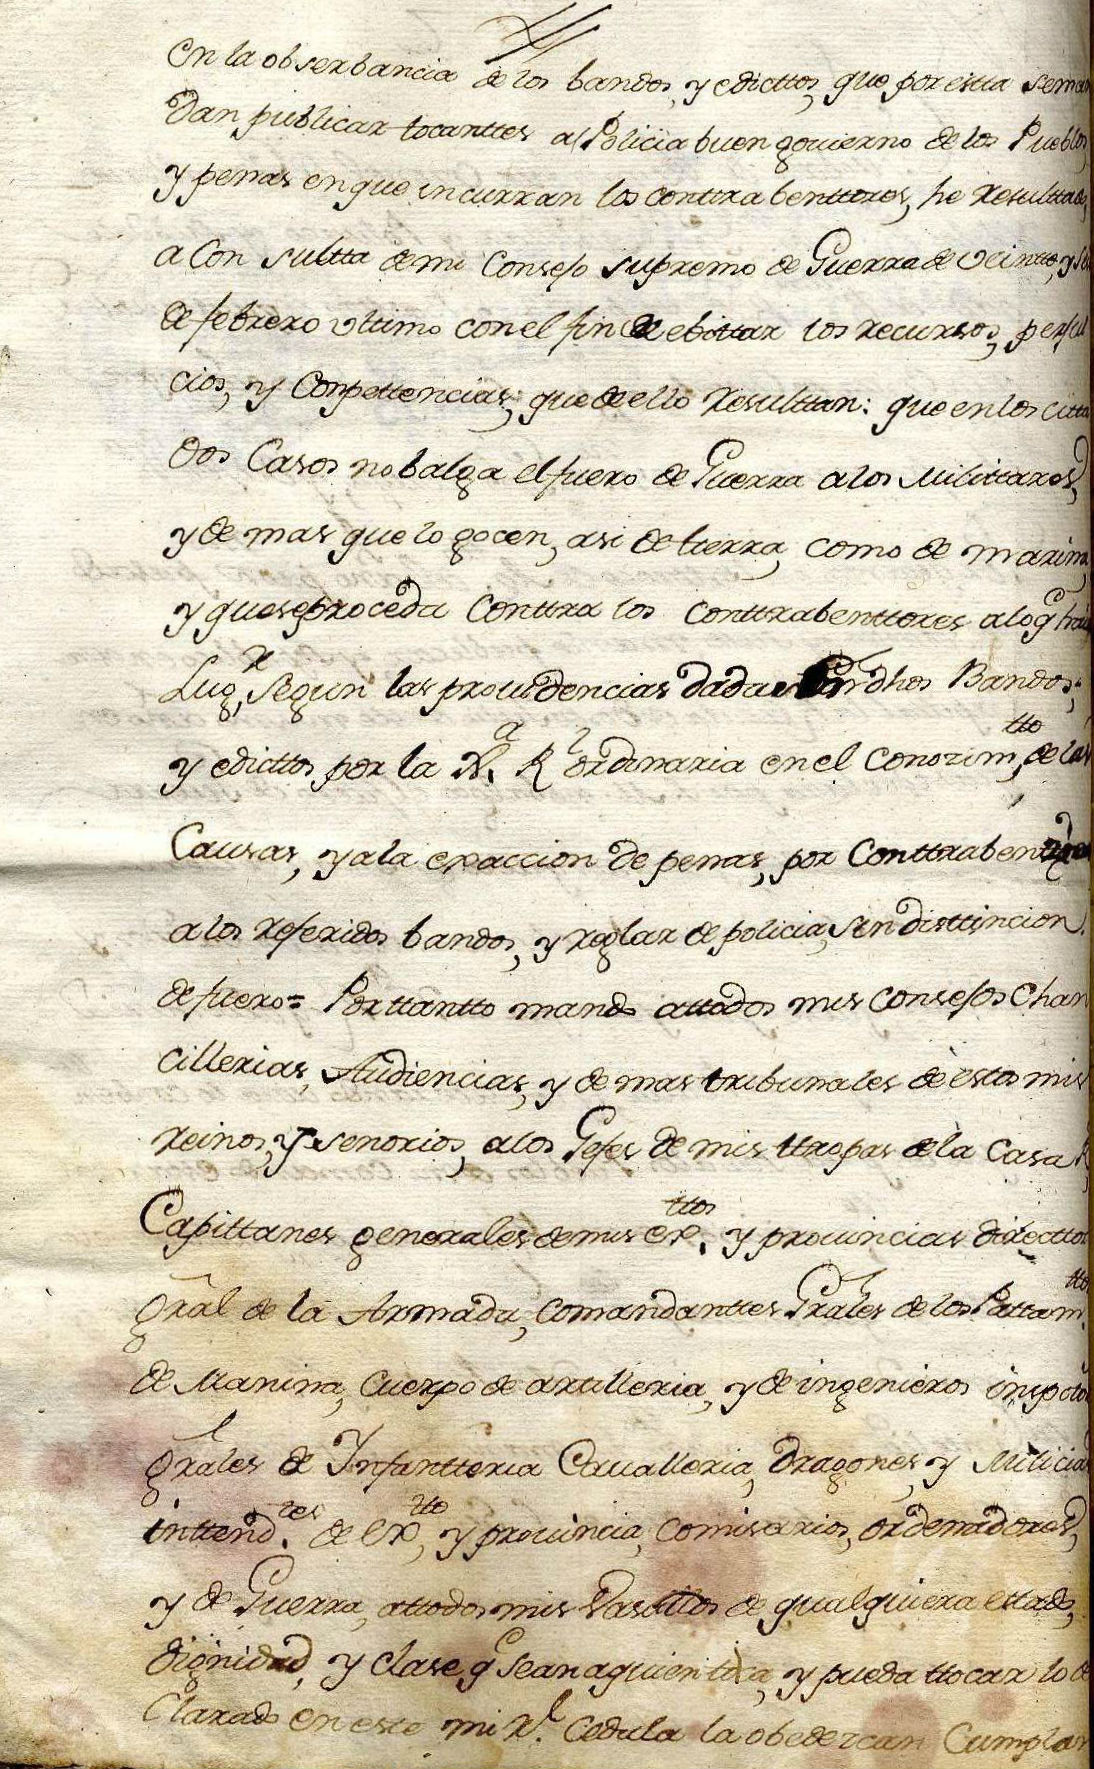 En la obserbancia de los bandos, y edicttos, que por estta se man
dan publicar tocanttes a Policia buen govierno de los Pueblos,
y penas en que incurran los conttrabenttores, he resulttado,
a Con sultta de mi Consejo supremo de Guerra de veintte, y
de febrero ulttimo con el fin de ebittar los recursos, perjui
cios, y Conpettencias, que de ello resulttan: que en los citta
dos Casos no balga el fuero de Guerra a los Milittares,
y de mas que lo gocen, asi de tierra, como de marina,
y que se proceda Conttra los conttrabenttores a lo q.e
Lug.r, segun las providencias dadas en dhos Bandos,
y edicttos por la R. Ordinaria en el Conozim.tto, de las
Causas, y a la exaccion de penas, por Conttrabenttores
a los referidos bandos, y reglar de policia, sin disttincion
de fuero= Porttantto mando attodos mis Consejos Chan
cillerias, Audiencias, y de mas tribunales de estos mis
reinos, y senorios, a los Gefes de mis ttropas de la Casa R.
Capittanes generales de mis ex.ttos y provincias directtor
gral de la Armada, comandanttes Grales de los Parttam.ttos
de Marina, Cuerpo de artilleria, y de ingenieros inspector
grales de Ynfantteria Cavalleria, dragones, y Milicias
inttend.tes de ex.tto, y provincia, comisarios, ordenadores,
y de Guerra, attodos mis Vasallos de qualquiera esttado,
dignidad, y clase q.e sean a quien toca, y pueda ttocar lo de
Clarado en este mi R.l Cedula la obedezcan Cumplan